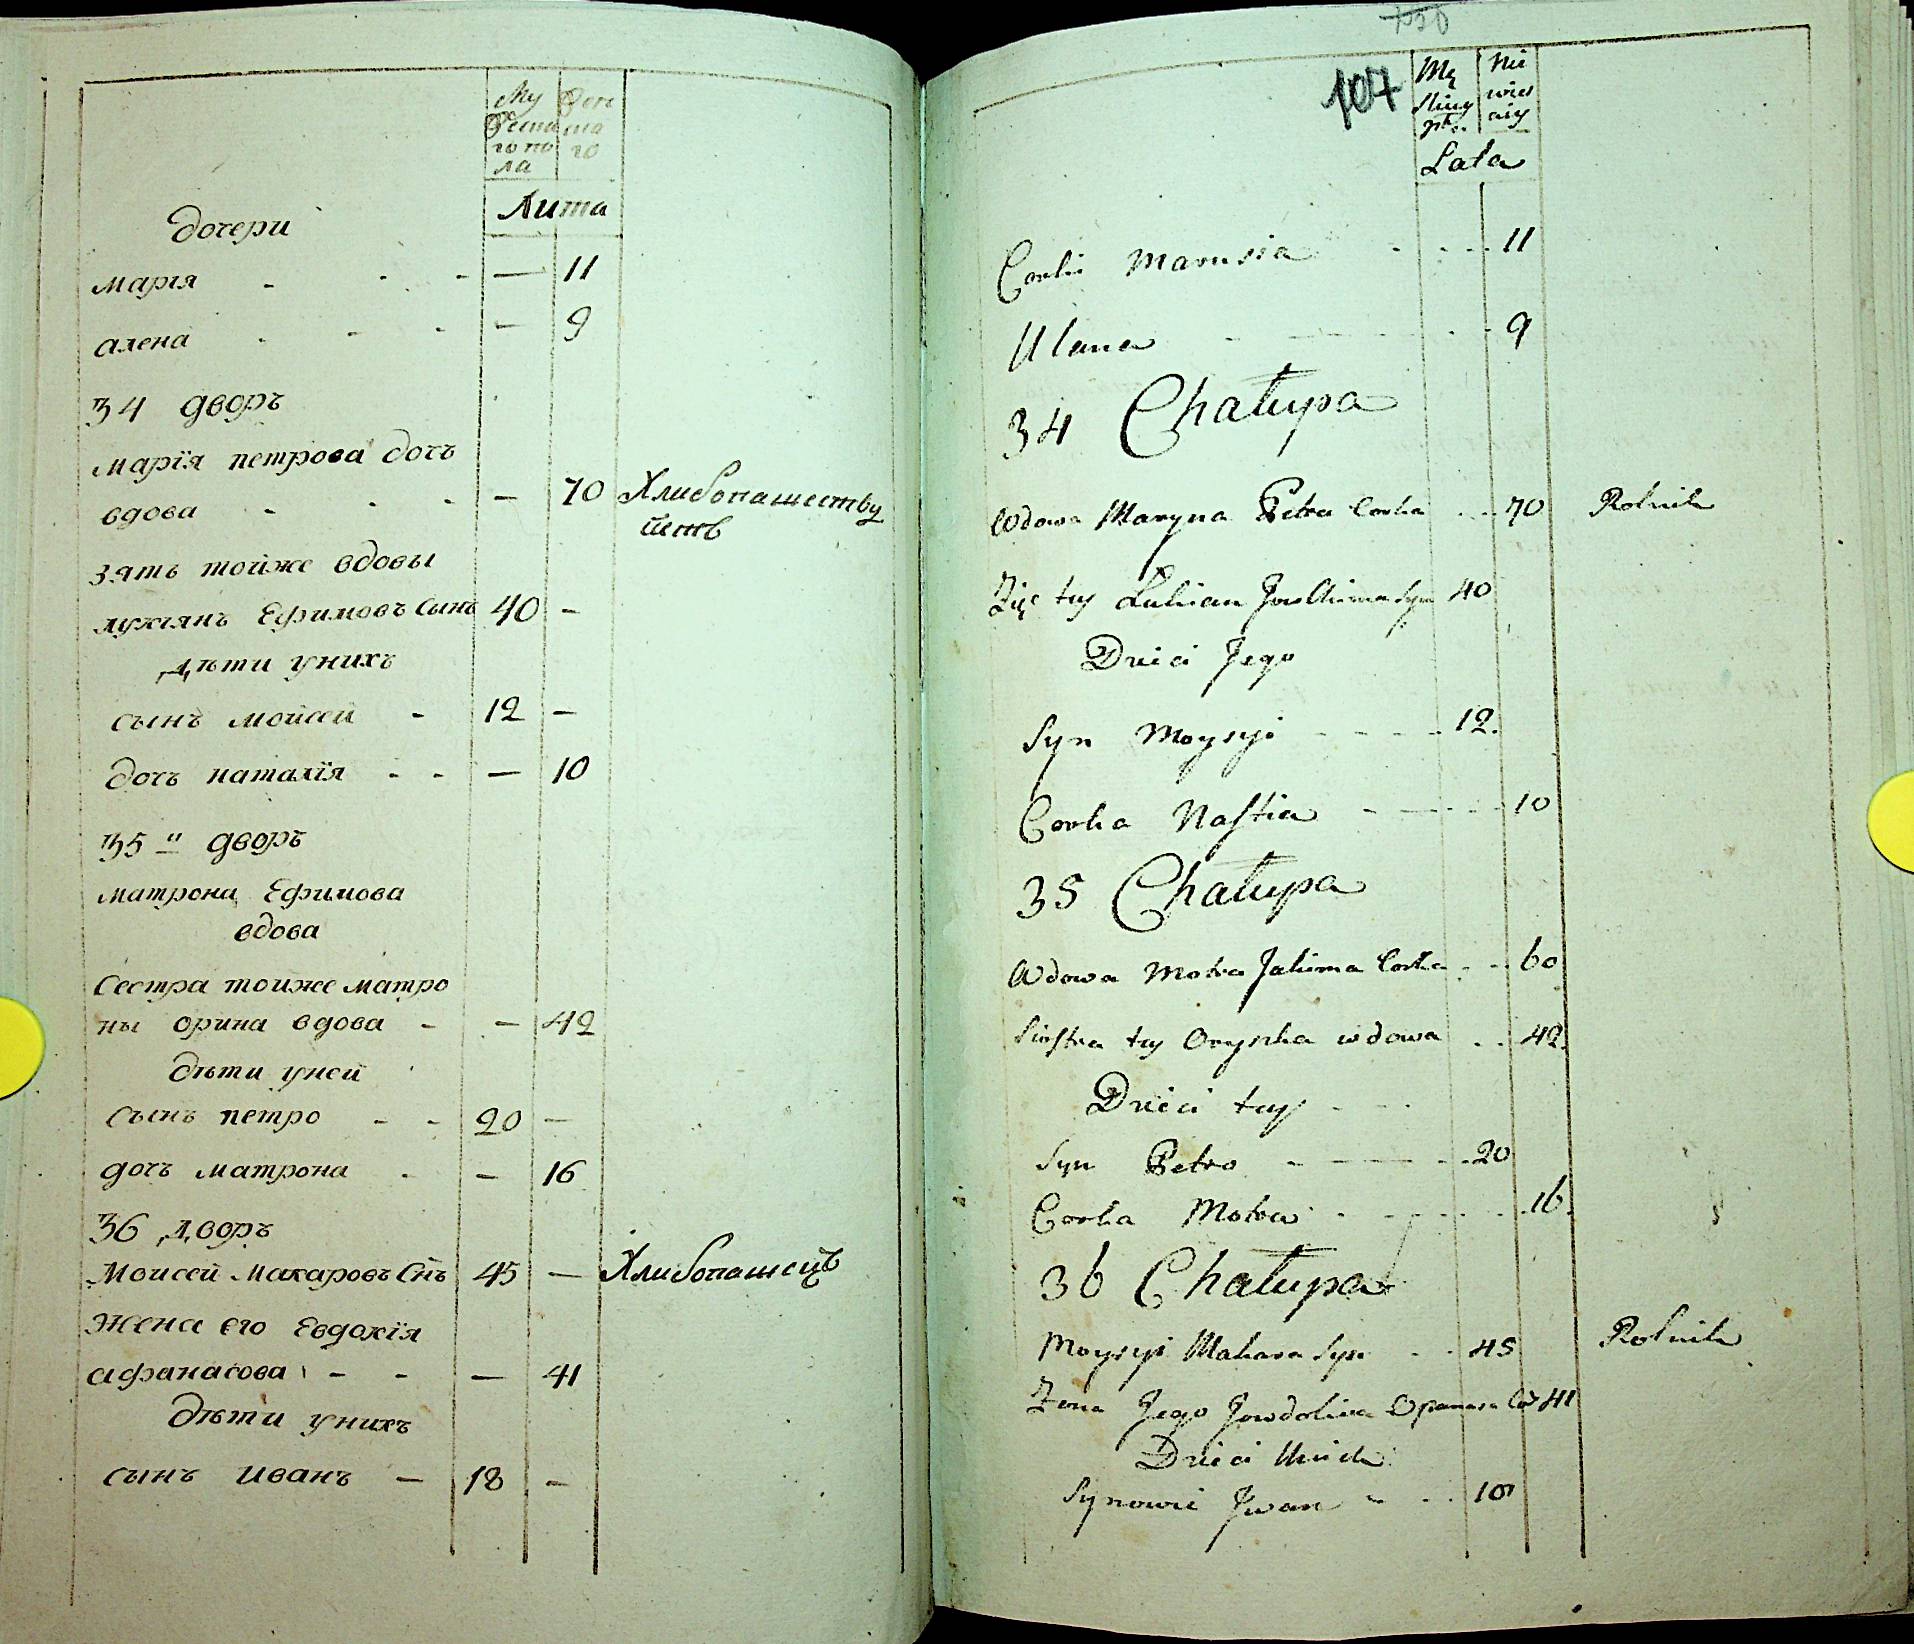 Му Жен
жеска ска
го по го
ла
Лита
дочери
марія - - - — 11
алена - - - — 9
34 дворъ
марїя петрова дочь
вдова - - - — 70 Хлибопашеству
ить
зять тойже вдовы
лукіянъ Ефимовъ сынъ 40 —
Дѣти унихъ
сынъ мойсей - 12 —
дочь наталїя - - — 10
35 й дворъ
матрона Ефимова
вдова
Сестра тойже матро
ны орина вдова - — 42
дѣти уней
сынъ петро - - 20 —
дочь матрона - — 16
36 дворъ
Моисей Макаровъ Снъ 45 — Хлибопашецъ
Жена его Евдокїя
афанасова - - — 41
дѣти унихъ
сынъ иванъ — 18 —
107
Mę Nie
skiey wies
płci ciey
Lata
Corki Marusia - - - 11
Ulana - - - 9
34 Chałupa
Wdowa Maryna Petra Corka - - 70 Rolnik
Zięć tey Łukian Jowchima Syn 40
Dzieci Jego
Syn Moysyi - - - - 12.
Corka Nastia - - - - 10
35 Chałupa
Wdowa Motra Jakima Corka - - 60
Siostra tey Oryszka wdowa - - 42.
Dzieci tey - -
Syn Petro - - - 20
Corka Motra - - - - 16.
36 Chałupa
Moysyi Makara Syn - - 45 Rolnik
Zona Jego Jowdokia Opanasa Cor 41
Dzieci Unich
Synowie Jwan - - - 18